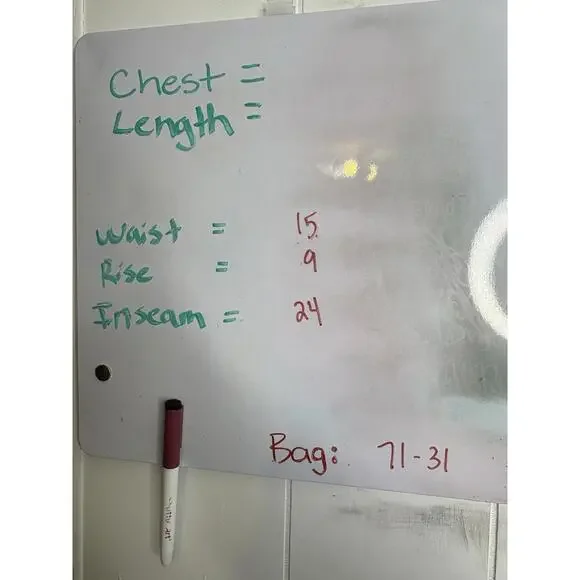 Chest =
Length =
Waist = 15
Rise = 9
Inseam = 24
Bag: 71-31